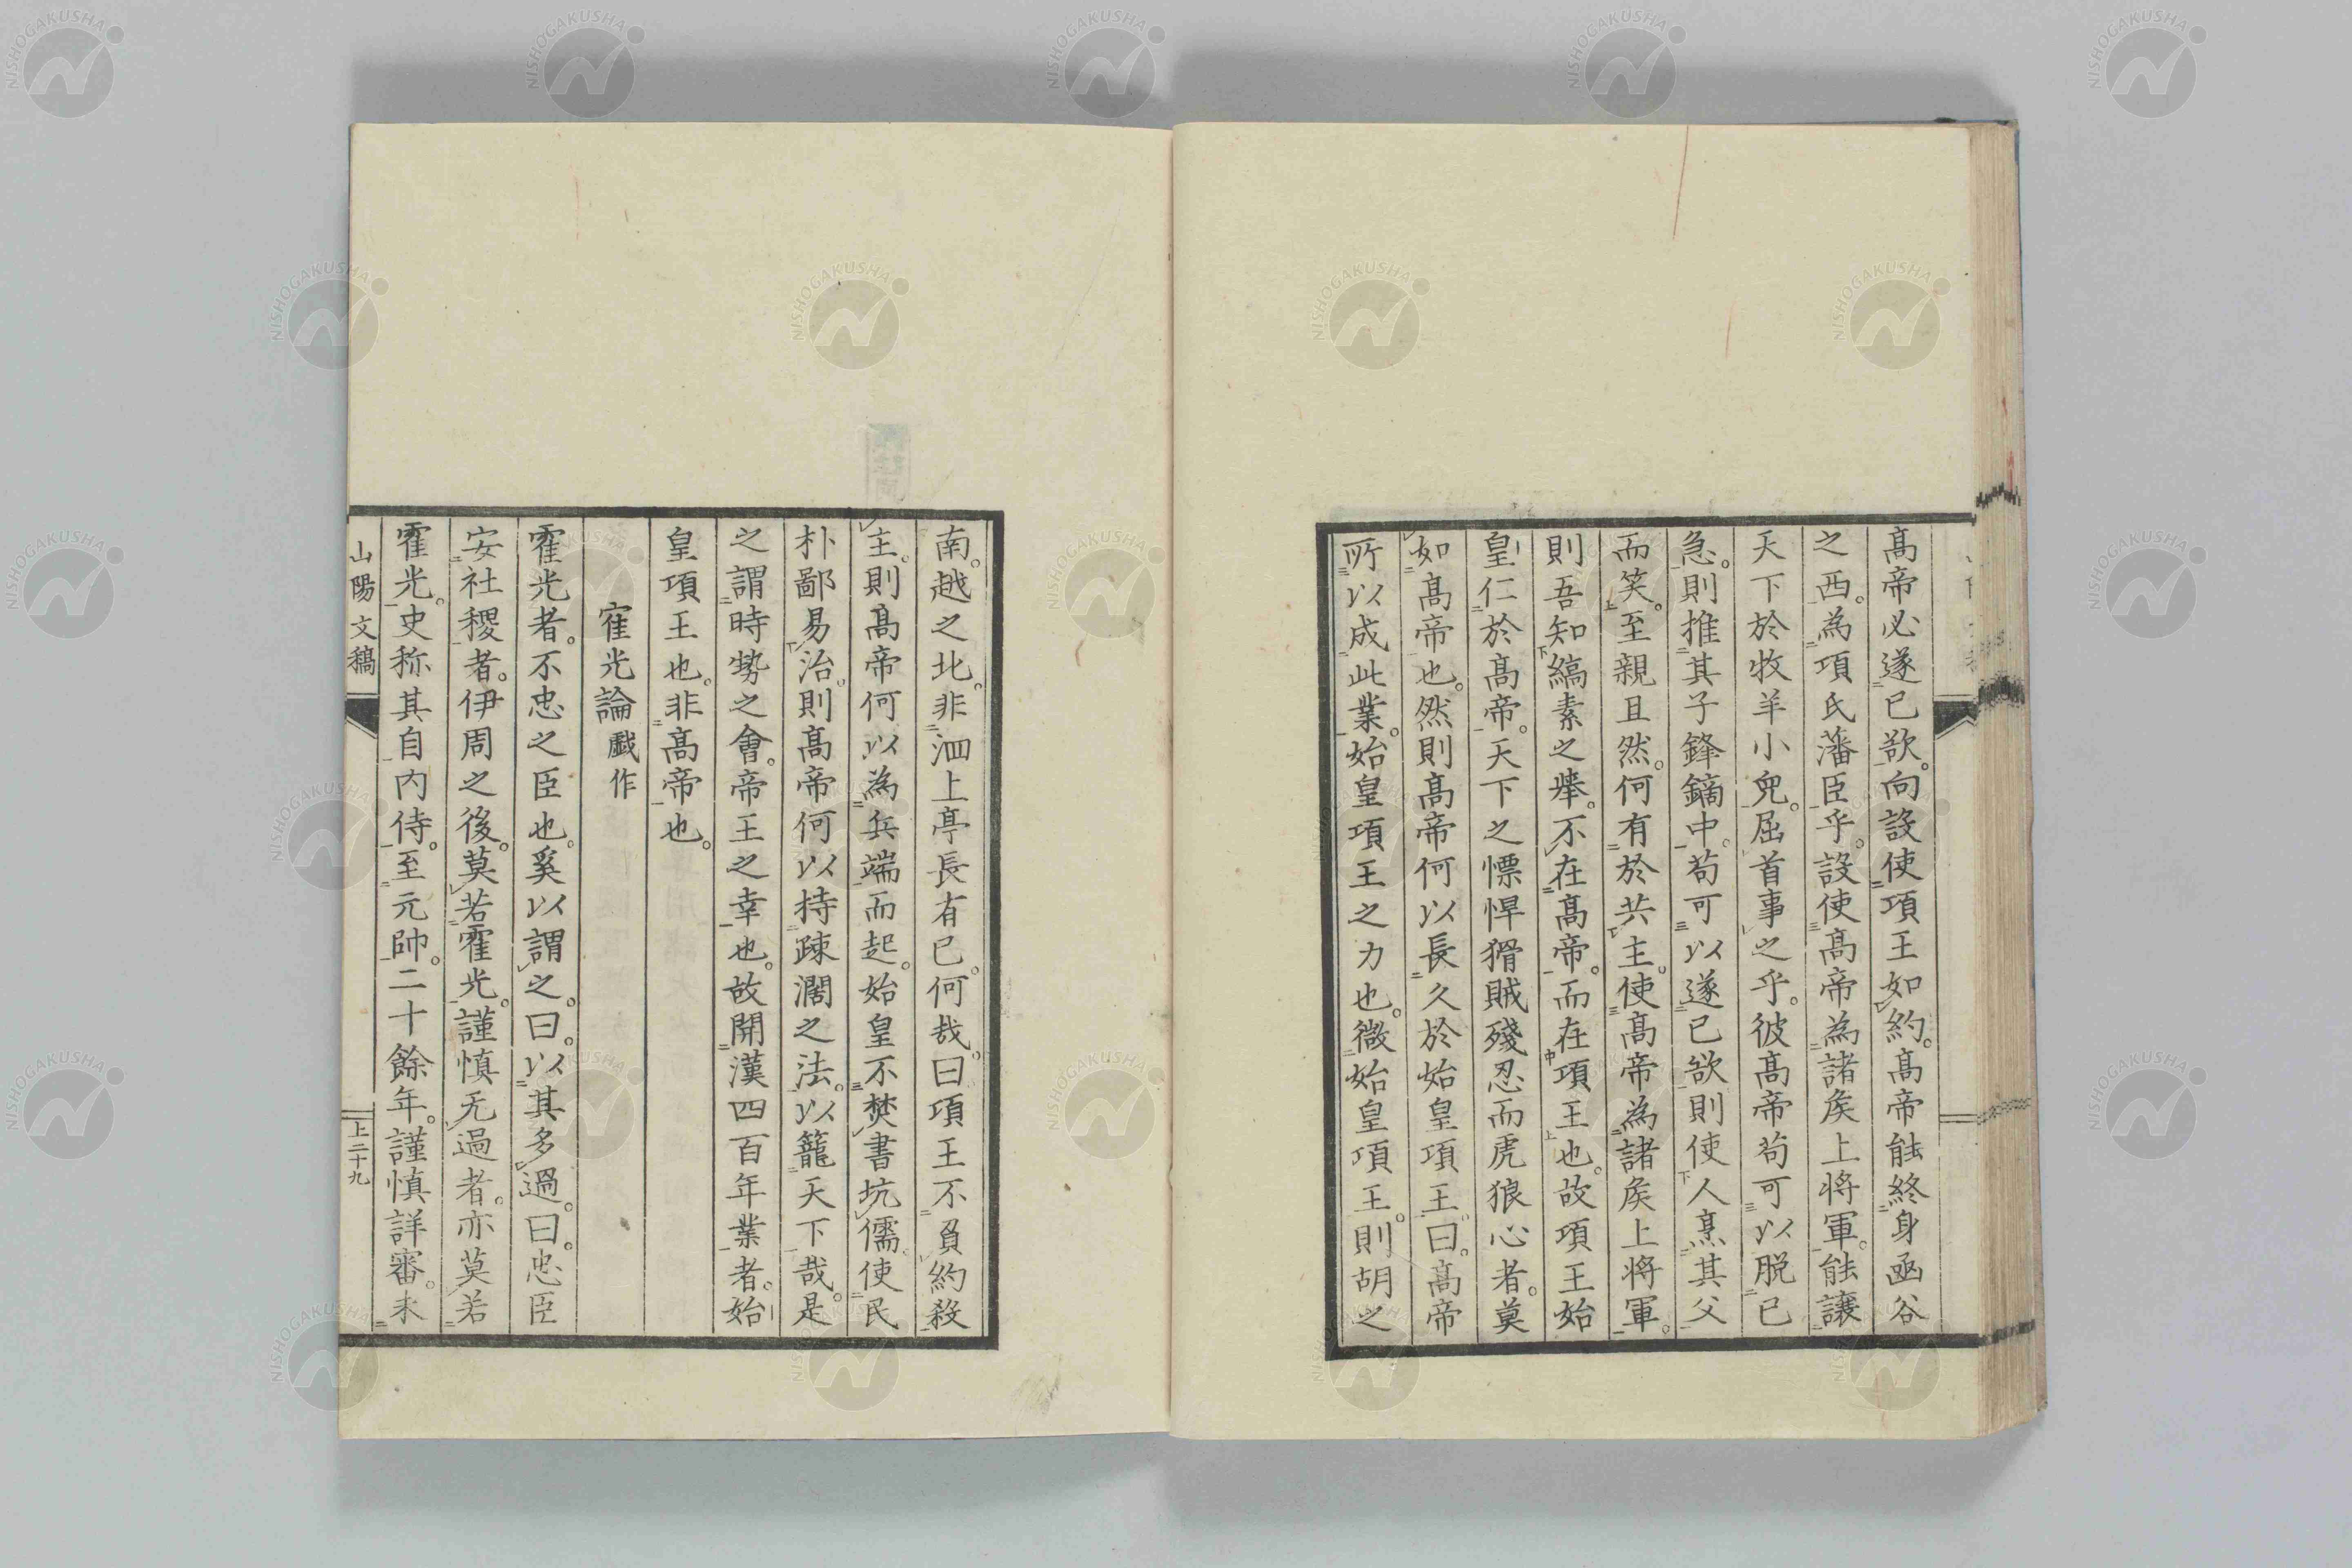 高帝必遂已欲。向設使項王如約。高帝能終身函谷
之西。為項氏藩臣乎。設使高帝為諸矦上将軍。能讓
天下於牧羊小兒。屈首事之乎。彼高帝苟可以脱已
急。則推其子鋒鏑中。苟可以遂已欲則使人烹其父
而笑。至親且然。何有於共主。使高帝為諸矦上将軍。
則吾知縞素之擧。不在高帝。而在項王也。故項王始
皇仁於高帝。天下之慓悍猾賊殘忍而虎狼心者。莫
如高帝也。然則高帝何以長久於始皇項王。曰。高帝
所以成此業。始皇項王之力也。微始皇項王。則胡之
南。越之北。非泗上亭長有已。何哉。曰項王不負約殺
主。則高帝何以為兵端而起。始皇不焚書坑儒。使民
朴鄙易治。則高帝何以持疎濶之法。以籠天下哉。是
之謂時勢之會。帝王之幸也。故開漢四百年業者。始
皇項王也。非高帝也。
霍光論 戯作
霍光者。不忠之臣也。奚以謂之。曰。以其多過。曰。忠臣
安社稷者。伊周之後。莫若霍光。謹慎无過者。亦莫若
霍光。史称其自内侍。至元帥。二十餘年。謹慎詳審。未
山陽文稿
上二十九
NISHOGAKUSHA